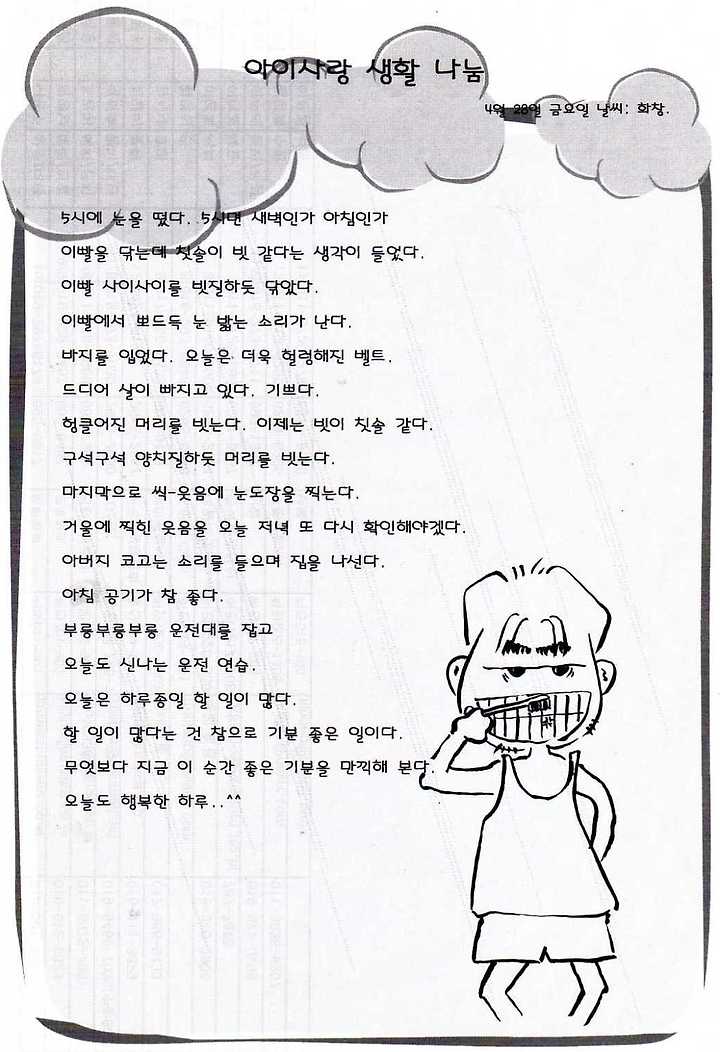 아이사랑 생활 나눔
4월 28일 금요일 날씨: 화창.
5시에 눈을 떴다. 5시면 새벽인가 아침인가
이빨을 닦는데 칫솔이 빗 같다는 생각이 들었다.
이빨 사이사이를 빗질하듯 닦았다.
이빨에서 뽀드득 눈 밟는 소리가 난다.
바지를 입었다. 오늘은 더욱 헐렁해진 벨트.
드디어 살이 빠지고 있다. 기쁘다.
헝클어진 머리를 빗는다. 이제는 빗이 칫솔 같다.
구석구석 양치질하듯 머리를 빗는다.
마지막으로 씩-웃음에 눈도장을 찍는다.
거울에 찍힌 웃음을 오늘 저녁 또 다시 확인해야겠다.
아버지 코고는 소리를 들으며 집을 나선다.
아침 공기가 참 좋다.
부릉부릉부릉 운전대를 잡고
오늘도 신나는 운전 연습.
오늘은 하루종일 할 일이 많다.
할 일이 많다는 건 참으로 기분 좋은 일이다.
무엇보다 지금 이 순간 좋은 기분을 만끽해 본다.
오늘도 행복한 하루..^^